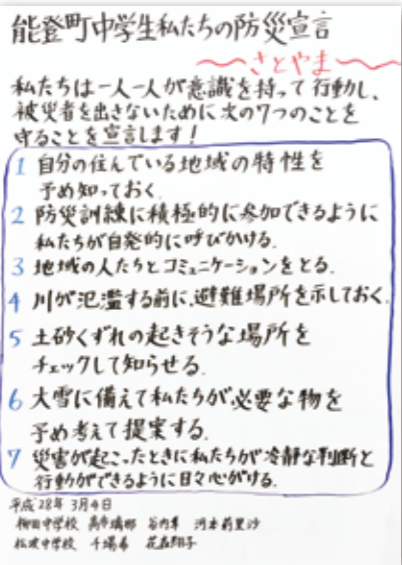 能登町中学生私たちの防災宣言
〜さとやま〜
私たちは一人一人が意識を持って行動し、
被災者を出さないために次の7つのことを
守ることを宣言します！
1 自分の住んでいる地域の特性を
予め知っておく.
2 防災訓練に積極的に参加できるように
私たちが自発的に呼びかける.
3 地域の人たちとコミュニケーションをとる.
4 川が氾濫する前に、避難場所を示しておく.
5 土砂くずれの起きそうな場所を
チェックして知らせる.
6 大雪に備えて私たちが、必要な物を
予め考えて提案する.
7 災害が起こったときに私たちが冷静な判断と
行動ができるように日々心がける.
平成28年 3月4日
柳田中学校
松波中学校